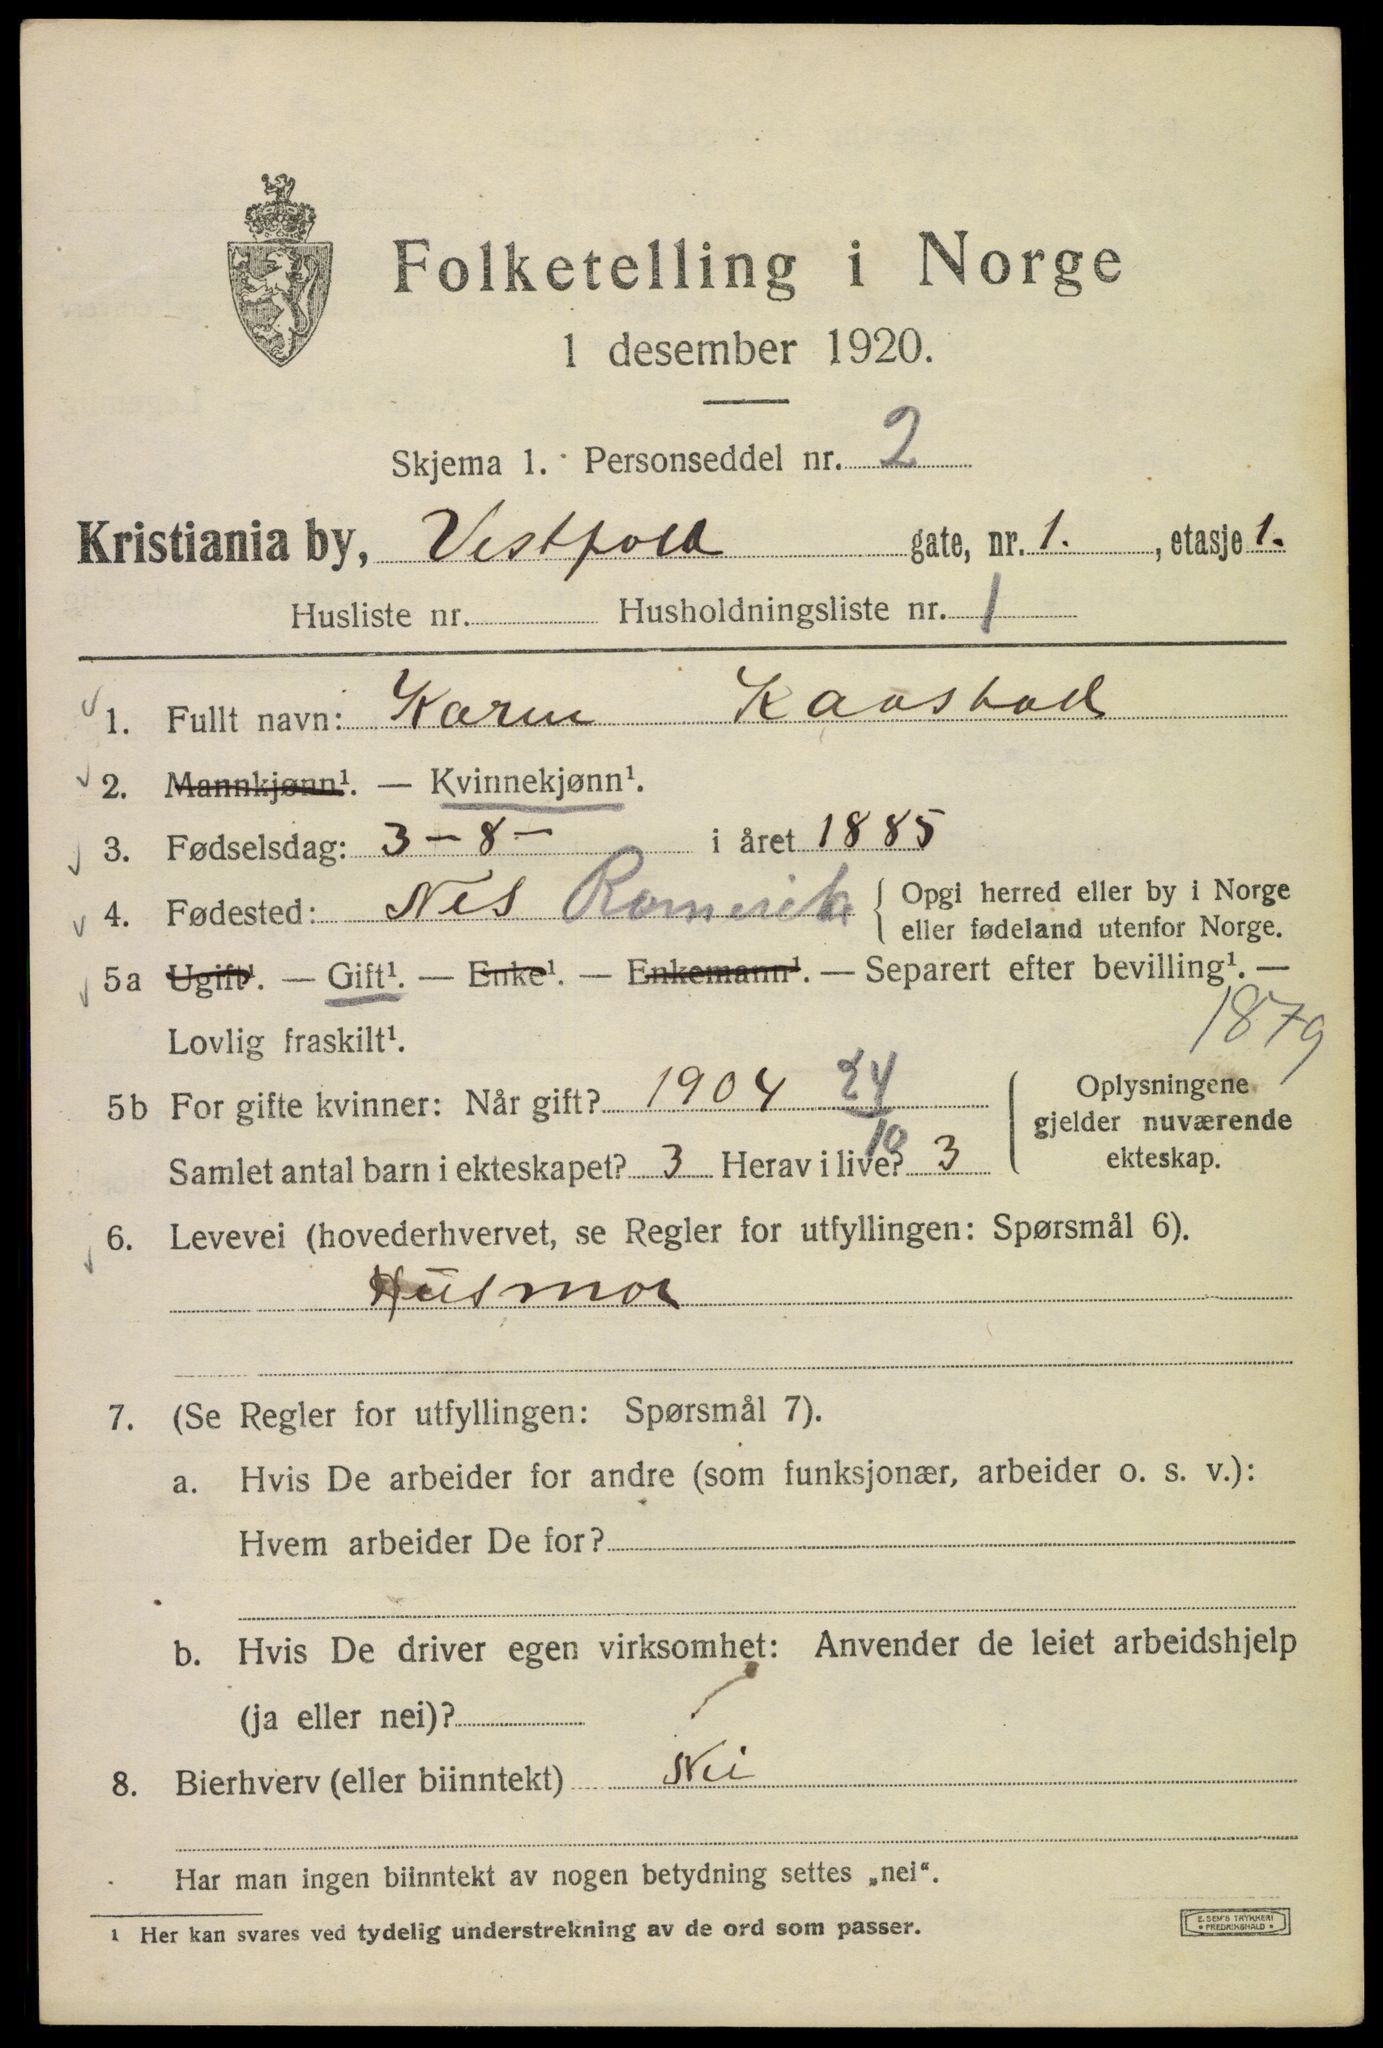 Folketelling i Norge
1 desember 1920.
Skjema 1. Personseddel nr. 2
Kristiania by, Vestfold gate, nr. 1. , etasje 1.
Husliste nr. Husholdningsliste nr. 1
1. Fullt navn: Karen Kaastad
2. Mannkjønn¹. — Kvinnekjønn¹.
3. Fødselsdag: 3 – 8 – i året 1885
4. Fødested: Nes Romerik { Opgi herred eller by i Norge
eller fødeland utenfor Norge.
5a Ugift¹. — Gift¹. — Enke¹. — Enkemann¹. — Separert efter bevilling¹. —
Lovlig fraskilt¹.
1879
5b For gifte kvinner: Når gift? 1904 24/10
Samlet antal barn i ekteskapet? 3 Herav i live? 3
Oplysningene
gjelder nuværende
ekteskap.
6. Levevei (hovederhvervet, se Regler for utfyllingen: Spørsmål 6).
Husmor
7. (Se Regler for utfyllingen: Spørsmål 7).
a. Hvis De arbeider for andre (som funksjonær, arbeider o. s. v.):
Hvem arbeider De for?
b. Hvis De driver egen virksomhet: Anvender de leiet arbeidshjelp
(ja eller nei)?
8. Bierhverv (eller biinntekt) Nei
Har man ingen biinntekt av nogen betydning settes „nei“.
¹ Her kan svares ved tydelig understrekning av de ord som passer.
E. SEM'S TRYKKERI
• FREDRIKSHALD •